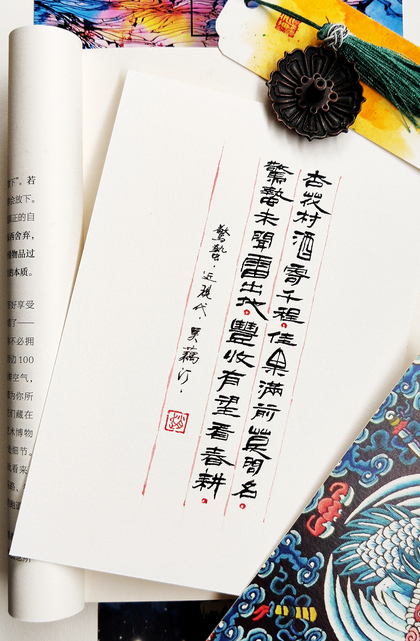 杏花村酒寄千程。佳果滿前莫問名。
驚蟄未聞雷出地。豐收有望看春耕。
驚蟄·近現代 吳藕汀·
下”。若
会放下。
正的自
舍弃，
物品过
的本质。
好享受
了——
不必拥
边100
空气，
为你所
们藏在
术博物
细节。
看来